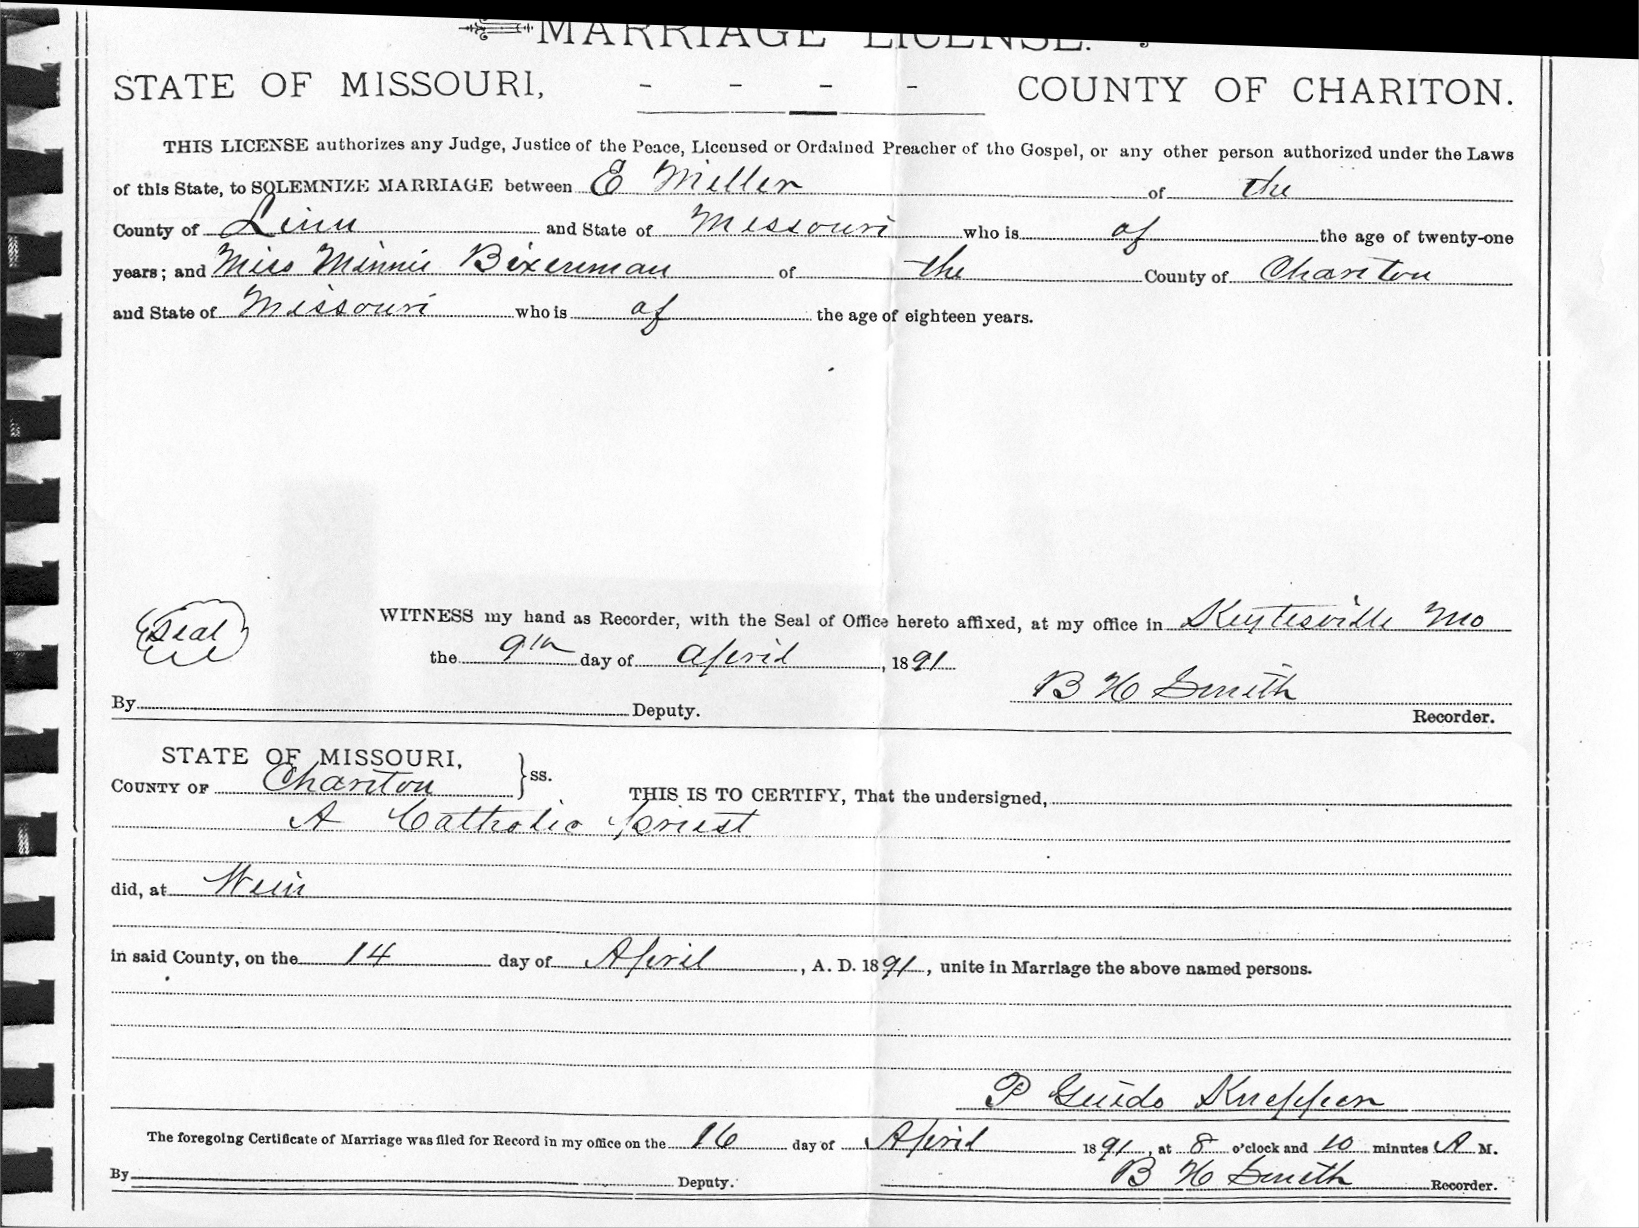 MARRIAGE LICENSE.
STATE OF MISSOURI, - - - - COUNTY OF CHARITON.
THIS LICENSE authorizes any Judge, Justice of the Peace, Licensed or Ordained Preacher of the Gospel, or any other person authorized under the Laws
of this State, to SOLEMNIZE MARRIAGE between E Miller of the
County of Linn and State of Missouri who is of the age of twenty-one
years; and Miss Minnie Bixenman of the County of Chariton
and State of Missouri who is of the age of eighteen years.
Seal
WITNESS my hand as Recorder, with the Seal of Office hereto affixed, at my office in Keytesville Mo
the 9th day of April, 1891
B H Smith
By Deputy. Recorder.
STATE OF MISSOURI,
COUNTY OF Chariton } ss. THIS IS TO CERTIFY, That the undersigned,
A Catholic Priest
did, at Wein
in said County, on the 14 day of April, A. D. 1891, unite in Marriage the above named persons.
P Guido Kneppen
The foregoing Certificate of Marriage was filed for Record in my office on the 16 day of April 1891, at 8 o'clock and 10 minutes A M.
B H Smith
By Deputy. Recorder.